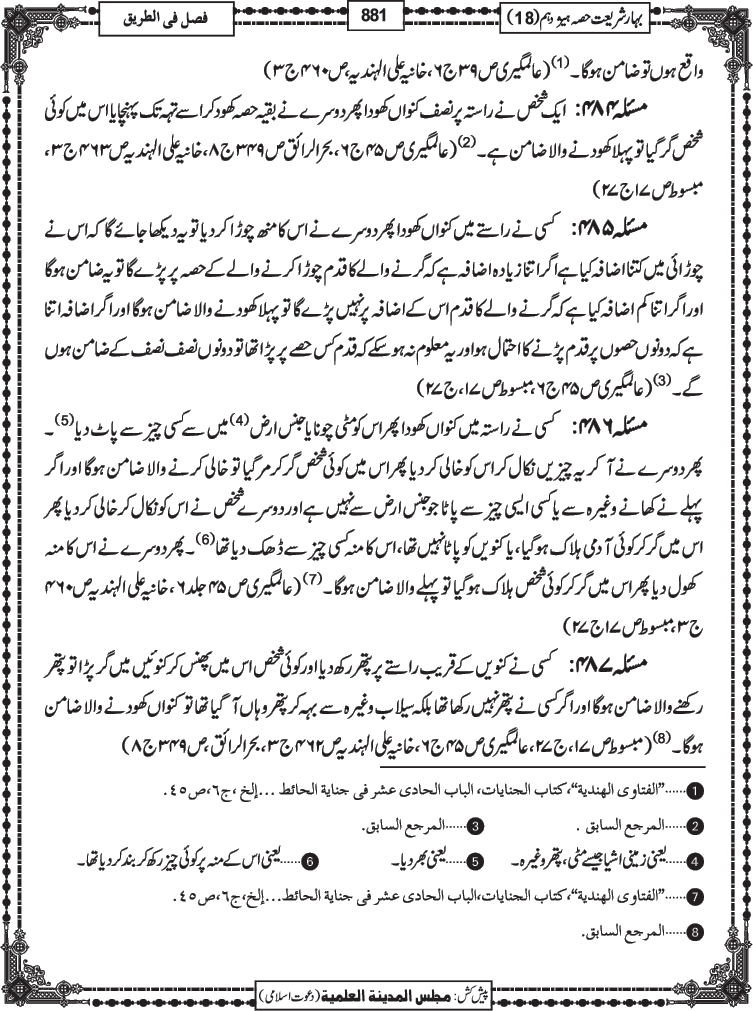 بہارِ شریعت حصہ ہیژدہم (18)
881
فصل فی الطریق
واقع ہوں تو ضامن ہوگا۔(1) (عالمگیری ص ۳۹ ج ۶، خانیہ علی الہندیہ، ص ۴۶۰ ج ۳)
مسئلہ ۴۸۴: ایک شخص نے راستہ پر نصف کنواں کھودا پھر دوسرے نے بقیہ حصہ کھود کر اسے تہہ تک پہنچایا اس میں کوئی
شخص گر گیا تو پہلا کھودنے والا ضامن ہے۔(2) (عالمگیری ص ۴۵ ج ۶، بحر الرائق ص ۳۴۹ ج ۸، خانیہ علی الہندیہ ص ۴۶۳ ج ۳،
مبسوط ص ۱۷ ج ۲۷)
مسئلہ ۴۸۵: کسی نے راستے میں کنواں کھودا پھر دوسرے نے اس کا منھ چوڑا کر دیا تو یہ دیکھا جائے گا کہ اس نے
چوڑائی میں کتنا اضافہ کیا ہے اگر اتنا زیادہ اضافہ ہے کہ گرنے والے کا قدم چوڑا کرنے والے کے حصہ پر پڑے گا تو یہ ضامن ہوگا
اور اگر اتنا کم اضافہ کیا ہے کہ گرنے والے کا قدم اس کے اضافہ پر نہیں پڑے گا تو پہلا کھودنے والا ضامن ہوگا اور اگر اضافہ اتنا
ہے کہ دونوں حصوں پر قدم پڑنے کا احتمال ہو اور یہ معلوم نہ ہو سکے کہ قدم کس حصے پر پڑا تھا تو دونوں نصف نصف کے ضامن ہوں
گے۔(3) (عالمگیری ص ۴۵ ج ۶، مبسوط ص ۱۷، ج ۲۷)
مسئلہ ۴۸۶: کسی نے راستہ میں کنواں کھودا پھر اس کو مٹی چونا یا جنس ارض(4) میں سے کسی چیز سے پاٹ دیا(5)۔
پھر دوسرے نے آ کر یہ چیزیں نکال کر اس کو خالی کر دیا پھر اس میں کوئی شخص گر کر مر گیا تو خالی کرنے والا ضامن ہوگا اور اگر
پہلے نے کھانے وغیرہ سے یا کسی ایسی چیز سے پاٹا جو جنس ارض سے نہیں ہے اور دوسرے شخص نے اس کو نکال کر خالی کر دیا پھر
اس میں گر کر کوئی آدمی ہلاک ہو گیا، یا کنویں کو پاٹا نہیں تھا، اس کا منہ کسی چیز سے ڈھک دیا تھا(6)۔ پھر دوسرے نے اس کا منہ
کھول دیا پھر اس میں گر کر کوئی شخص ہلاک ہو گیا تو پہلے والا ضامن ہوگا۔(7) (عالمگیری ص ۴۵ جلد ۶، خانیہ علی الہندیہ ص ۴۶۰
ج ۳، مبسوط ص ۱۷ ج ۲۷)
مسئلہ ۴۸۷: کسی نے کنویں کے قریب راستے پر پتھر رکھ دیا اور کوئی شخص اس میں پھنس کر کنوئیں میں گر پڑا تو پتھر
رکھنے والا ضامن ہوگا اور اگر کسی نے پتھر نہیں رکھا تھا بلکہ سیلاب وغیرہ سے بہہ کر پتھر وہاں آ گیا تھا تو کنواں کھودنے والا ضامن
ہوگا۔(8) (مبسوط ص ۱۷، ج ۲۷، عالمگیری ص ۴۵ ج ۶، خانیہ علی الہندیہ ص ۴۶۲ ج ۳، بحر الرائق، ص ۳۴۹ ج ۸)
1......"الفتاوی الھندیة"، کتاب الجنایات، الباب الحادی عشر فی جنایة الحائط ...إلخ، ج٦، ص٤٥.
2......المرجع السابق. 3......المرجع السابق.
4......یعنی زمینی اشیا جیسے مٹی، پتھر وغیرہ۔ 5......یعنی بھر دیا۔ 6......یعنی اس کے منہ پر کوئی چیز رکھ کر بند کر دیا تھا۔
7......"الفتاوی الھندیة"، کتاب الجنایات، الباب الحادی عشر فی جنایة الحائط...إلخ، ج٦، ص٤٥.
8......المرجع السابق.
پیش کش: مجلس المدینة العلمیة (دعوت اسلامی)